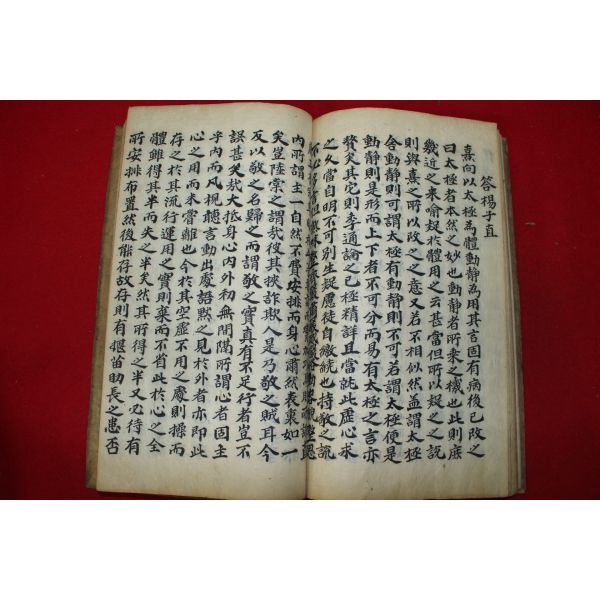 答楊子直
熹向以太極為體動靜為用其言固有病後已改之
曰太極者本然之妙也動靜者所乘之機也此則庶
幾近之來喻疑於體用之云甚當但所以疑之之說
則與熹之所以改之之意又若不相似然蓋謂太極
含動靜則可謂太極有動靜則可若謂太極便是
動靜則是形而上下者不可分而易有太極之言亦
贅矣其它則季通論之已極精詳且當就此虛心求
之久當自明不可別生疑慮徒自繳繞也持敬之說
內所謂主一自然不費安排而身心肅然表裏如一
矣豈陸棠之謂哉彼其挾詐欺人是乃敬之賊耳今
反以敬之名歸之而謂敬之實真有不足行者豈不
誤甚矣哉大抵身心內外初無間隔所謂心者固主
乎內而凡視聽言動出處語默之見於外者亦即此
心之用而未嘗離也今於其空虛不用之處則操而
存之於其流行運用之實則棄而不省此於心之全
體雖得其半而失之半矣然其所得之半又必待有
所安排布置然後能存故存則有揠苗助長之患否